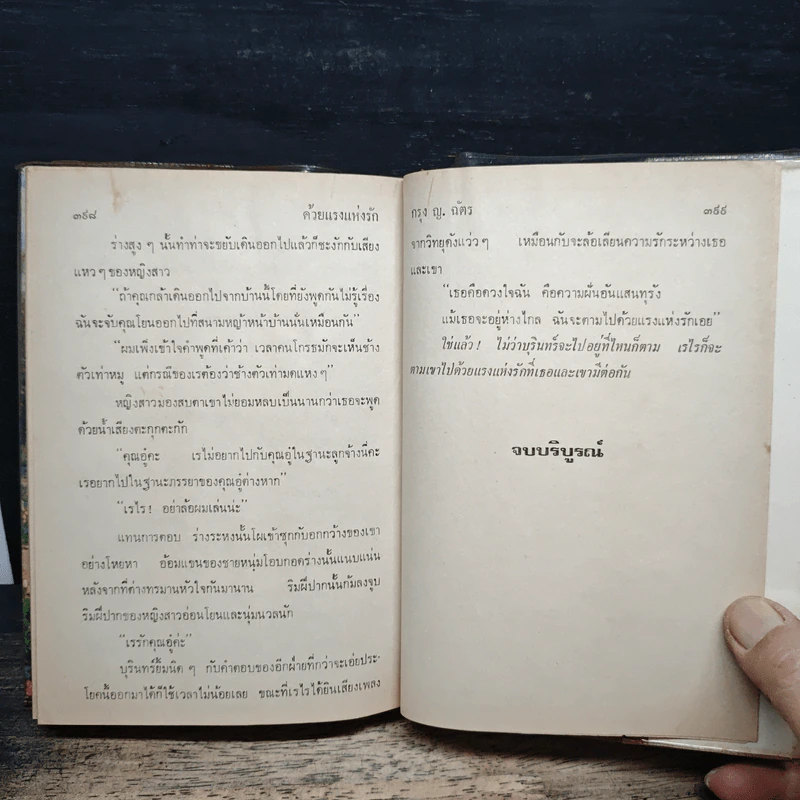 ๓๙๘
ด้วยแรงแห่งรัก
ร่างสูง ๆ นั้นทำท่าจะขยับเดินออกไปแล้วก็ชะงักกับเสียง
แหว ๆ ของหญิงสาว
“ถ้าคุณกล้าเดินออกไปจากบ้านนี้โดยที่ยังพูดกันไม่รู้เรื่อง
ฉันจะจับคุณโยนออกไปที่สนามหญ้าหน้าบ้านนั่นเหมือนกัน”
“ผมเพิ่งเข้าใจคำพูดที่เค้าว่า เวลาคนโกรธมักจะเห็นช้าง
ตัวเท่าหมู แต่กรณีของเรต้องว่าช้างตัวเท่ามดแหง ๆ”
หญิงสาวมองสบตาเขาไม่ยอมหลบเป็นนานกว่าเธอจะพูด
ด้วยน้ำเสียงตะกุกตะกัก
“คุณอู๋คะ เรไม่อยากไปกับคุณอู๋ในฐานะลูกจ้างนี่คะ
เรอยากไปในฐานะภรรยาของคุณอู๋ต่างหาก”
“เรไร! อย่าล้อผมเล่นน่ะ”
แทนการตอบ ร่างระหงนั้นโผเข้าซุกกับอกกว้างของเขา
อย่างโหยหา อ้อมแขนของชายหนุ่มโอบกอดร่างนั้นแนบแน่น
หลังจากที่ต่างทรมานหัวใจกันมานาน ริมฝีปากนั้นก้มลงจูบ
ริมฝีปากของหญิงสาวอ่อนโยนและนุ่มนวลนัก
“เรรักคุณอู๋ค่ะ”
บุรินทร์ยิ้มนิด ๆ กับคำตอบของอีกฝ่ายที่กว่าจะเอ่ยประ-
โยคนี้ออกมาได้ก็ใช้เวลาไม่น้อยเลย ขณะที่เรไรได้ยินเสียงเพลง
กรุง ญ. ฉัตร
๓๙๙
จากวิทยุดังแว่ว ๆ เหมือนกับจะล้อเลียนความรักระหว่างเธอ
และเขา
“เธอคือดวงใจฉัน คือความฝันอันแสนทุรัง
แม้เธอจะอยู่ห่างไกล ฉันจะตามไปด้วยแรงแห่งรักเอย”
ใช่แล้ว! ไม่ว่าบุรินทร์จะไปอยู่ที่ไหนก็ตาม เรไรก็จะ
ตามเขาไปด้วยแรงแห่งรักที่เธอและเขามีต่อกัน
จบบริบูรณ์